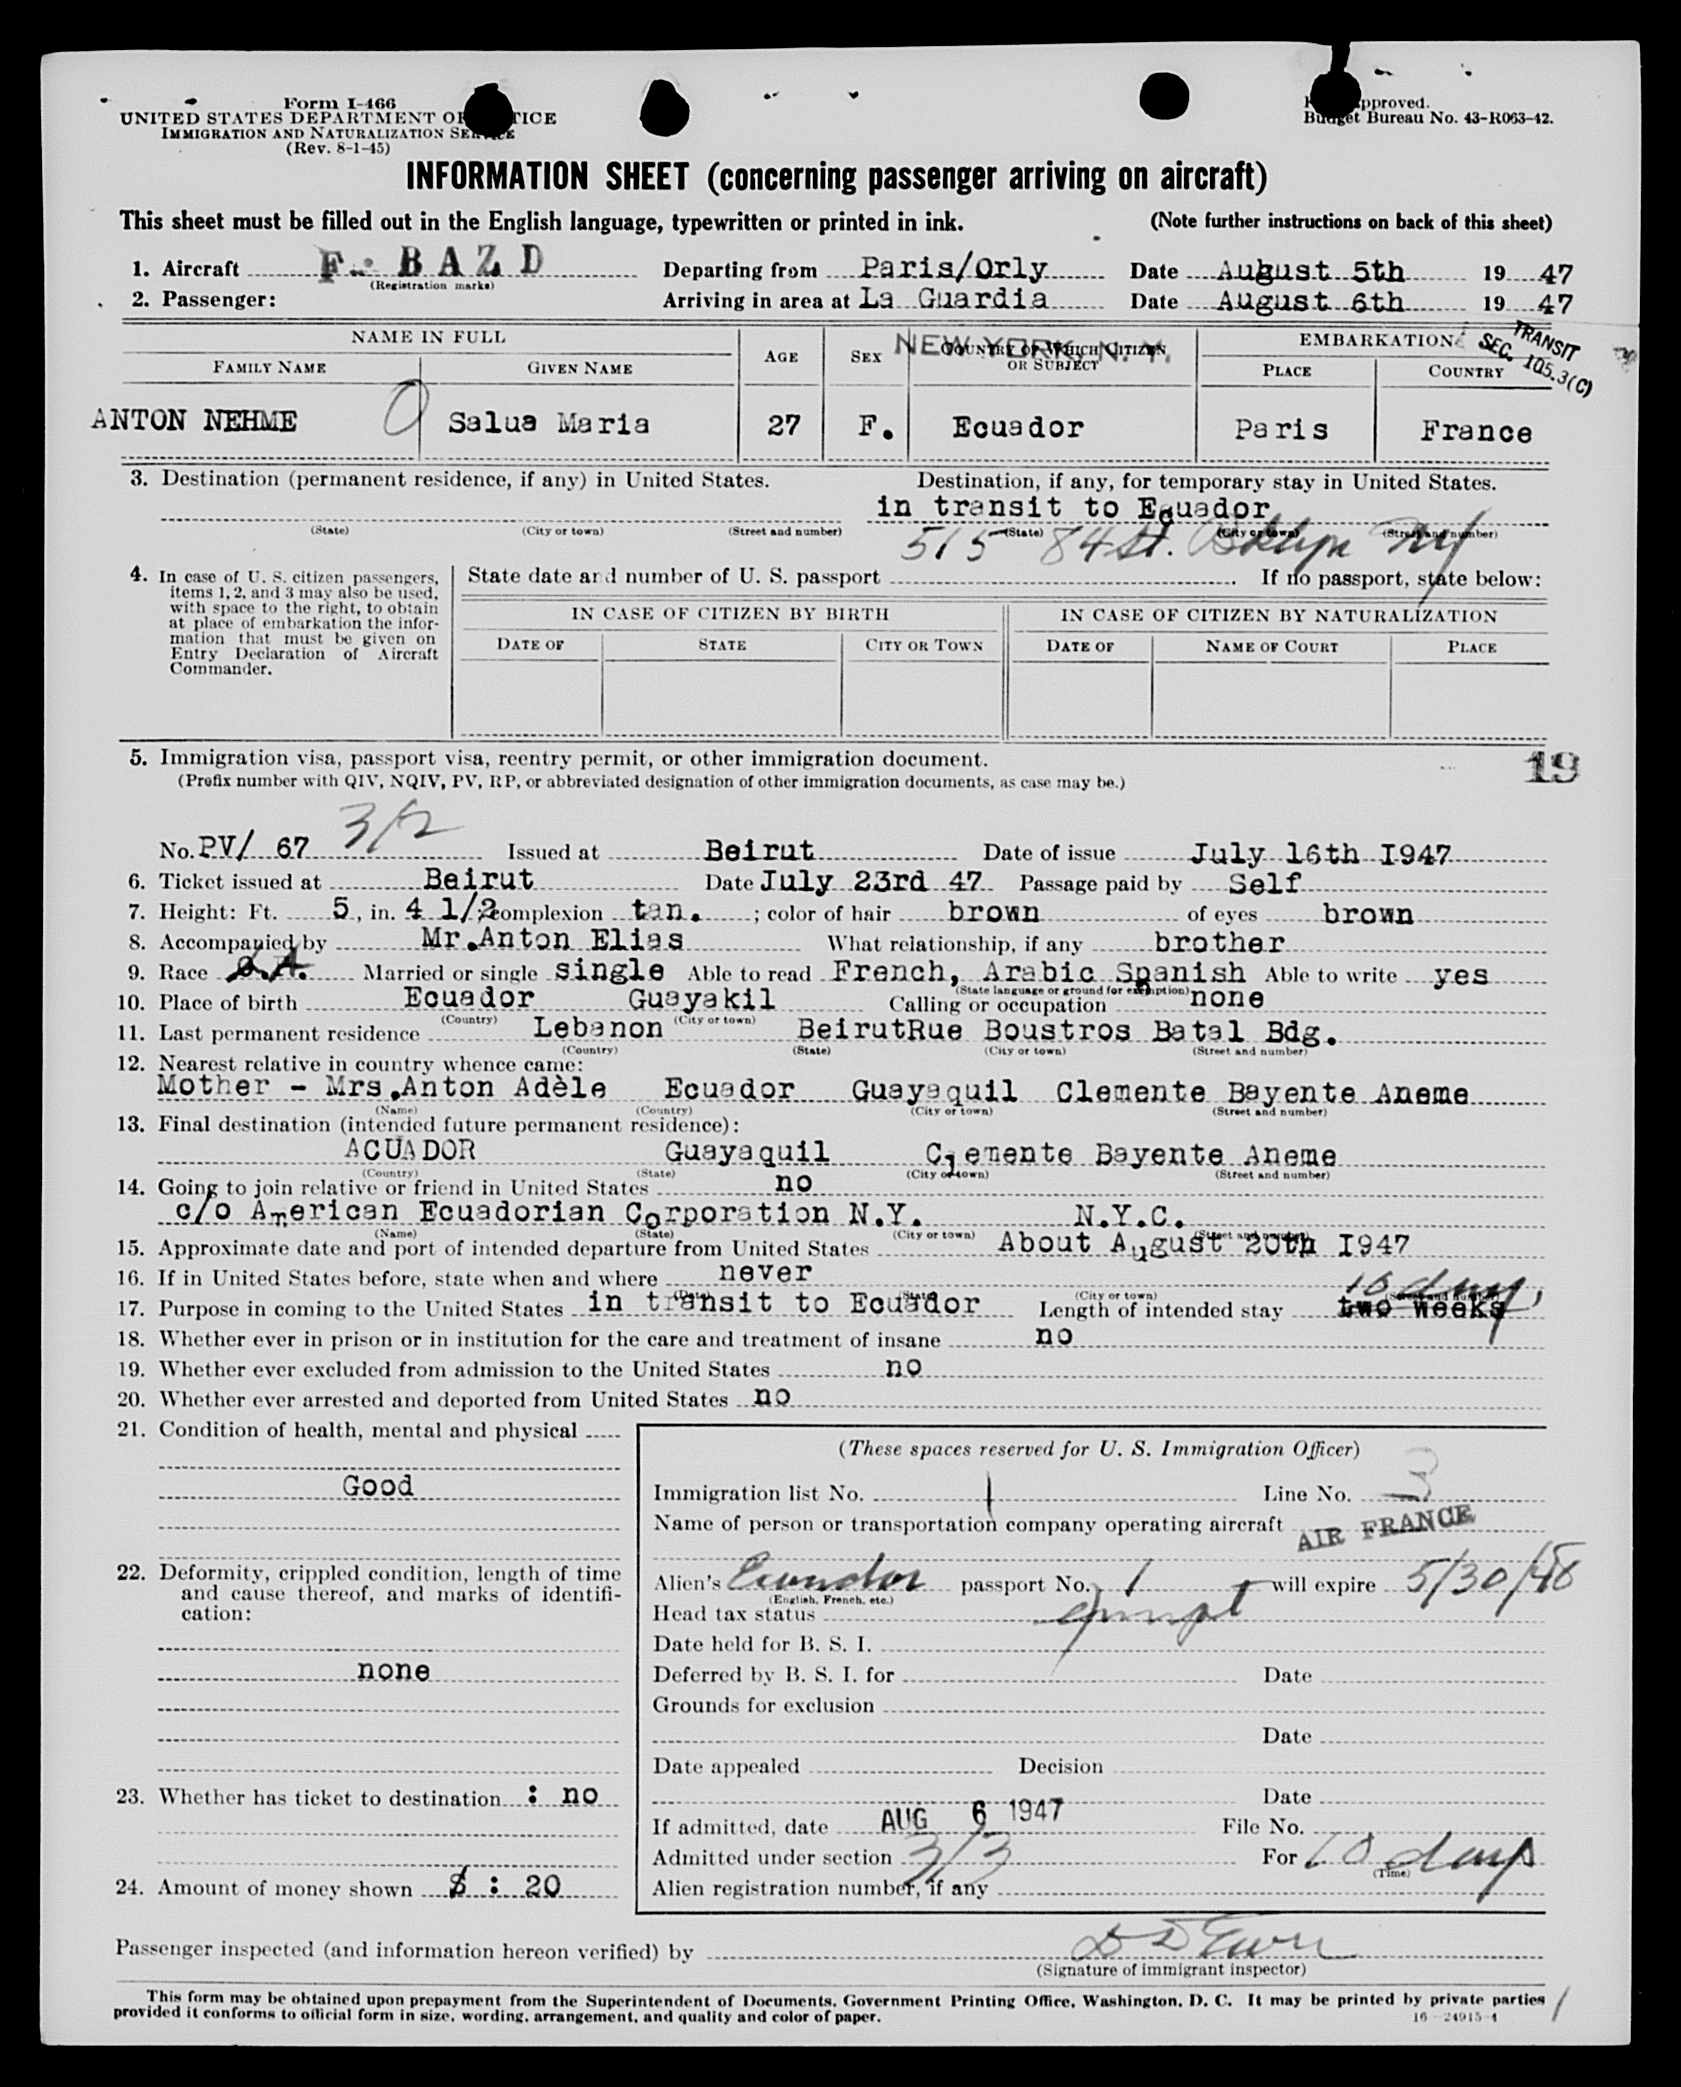 Form I-466
UNITED STATES DEPARTMENT OF JUSTICE
IMMIGRATION AND NATURALIZATION SERVICE
(Rev. 8-1-45)
Form approved.
Budget Bureau No. 43-R063-42.
INFORMATION SHEET (concerning passenger arriving on aircraft)
This sheet must be filled out in the English language, typewritten or printed in ink. (Note further instructions on back of this sheet)
1. Aircraft F. BAZD Departing from Paris/Orly Date August 5th 1947
(Registration marks)
2. Passenger: Arriving in area at La Guardia Date August 6th 1947
NEW YORK, N. Y.
TRANSIT
SEC. 105.3(C)
NAME IN FULL AGE SEX COUNTRY OF WHICH CITIZEN OR SUBJECT EMBARKATION
FAMILY NAME GIVEN NAME PLACE COUNTRY
ANTON NEHME Salua Maria 27 F. Ecuador Paris France
3. Destination (permanent residence, if any) in United States. Destination, if any, for temporary stay in United States.
in transit to Equador
(State) (City or town) (Street and number) (State) (City or town) (Street and number)
515 84 St. Bklyn NY
4. In case of U. S. citizen passengers, items 1, 2, and 3 may also be used, with space to the right, to obtain at place of embarkation the information that must be given on Entry Declaration of Aircraft Commander.
State date and number of U. S. passport If no passport, state below:
IN CASE OF CITIZEN BY BIRTH IN CASE OF CITIZEN BY NATURALIZATION
DATE OF STATE CITY OR TOWN DATE OF NAME OF COURT PLACE
5. Immigration visa, passport visa, reentry permit, or other immigration document.
19
(Prefix number with QIV, NQIV, PV, RP, or abbreviated designation of other immigration documents, as case may be.)
3/2
No. PV/ 67 Issued at Beirut Date of issue July 16th I947
6. Ticket issued at Beirut Date July 23rd 47 Passage paid by Self
7. Height: Ft. 5, in. 4 1/2; complexion tan. ; color of hair brown of eyes brown
8. Accompanied by Mr.Anton Elias What relationship, if any brother
9. Race Married or single single Able to read French, Arabic Spanish Able to write yes
(State language or ground for exemption)
10. Place of birth Ecuador Guayakil Calling or occupation none
(Country) (City or town)
11. Last permanent residence Lebanon BeirutRue Boustros Batal Bdg.
(Country) (State) (City or town) (Street and number)
12. Nearest relative in country whence came:
Mother - Mrs.Anton Adèle Ecuador Guayaquil Clemente Bayente Aneme
(Name) (Country) (City or town) (Street and number)
13. Final destination (intended future permanent residence):
ACUADOR Guayaquil Clemente Bayente Aneme
(Country) (State) (City or town) (Street and number)
14. Going to join relative or friend in United States no
c/o American Ecuadorian Corporation N.Y. N.Y.C.
(Name) (State) (City or town) (Street and number)
15. Approximate date and port of intended departure from United States About August 20th I947
16. If in United States before, state when and where never
(Date) (State) (City or town) (Street and number)
10 days
17. Purpose in coming to the United States in transit to Ecuador Length of intended stay two weeks
18. Whether ever in prison or in institution for the care and treatment of insane no
19. Whether ever excluded from admission to the United States no
20. Whether ever arrested and deported from United States no
21. Condition of health, mental and physical
Good
22. Deformity, crippled condition, length of time and cause thereof, and marks of identification:
none
23. Whether has ticket to destination : no
24. Amount of money shown $ : 20
(These spaces reserved for U. S. Immigration Officer)
Immigration list No. 1 Line No. 3
Name of person or transportation company operating aircraft AIR FRANCE
Alien's Ecuador passport No. 1 will expire 5/30/48
(English, French, etc.)
Head tax status exempt
Date held for B. S. I.
Deferred by B. S. I. for Date
Grounds for exclusion
Date
Date appealed Decision
Date
If admitted, date AUG 6 1947 File No.
Admitted under section 3/3 For 10 days
(Time)
Alien registration number, if any
Passenger inspected (and information hereon verified) by
(Signature of immigrant inspector)
This form may be obtained upon prepayment from the Superintendent of Documents, Government Printing Office, Washington, D. C. It may be printed by private parties
provided it conforms to official form in size, wording, arrangement, and quality and color of paper.
16—24915-1